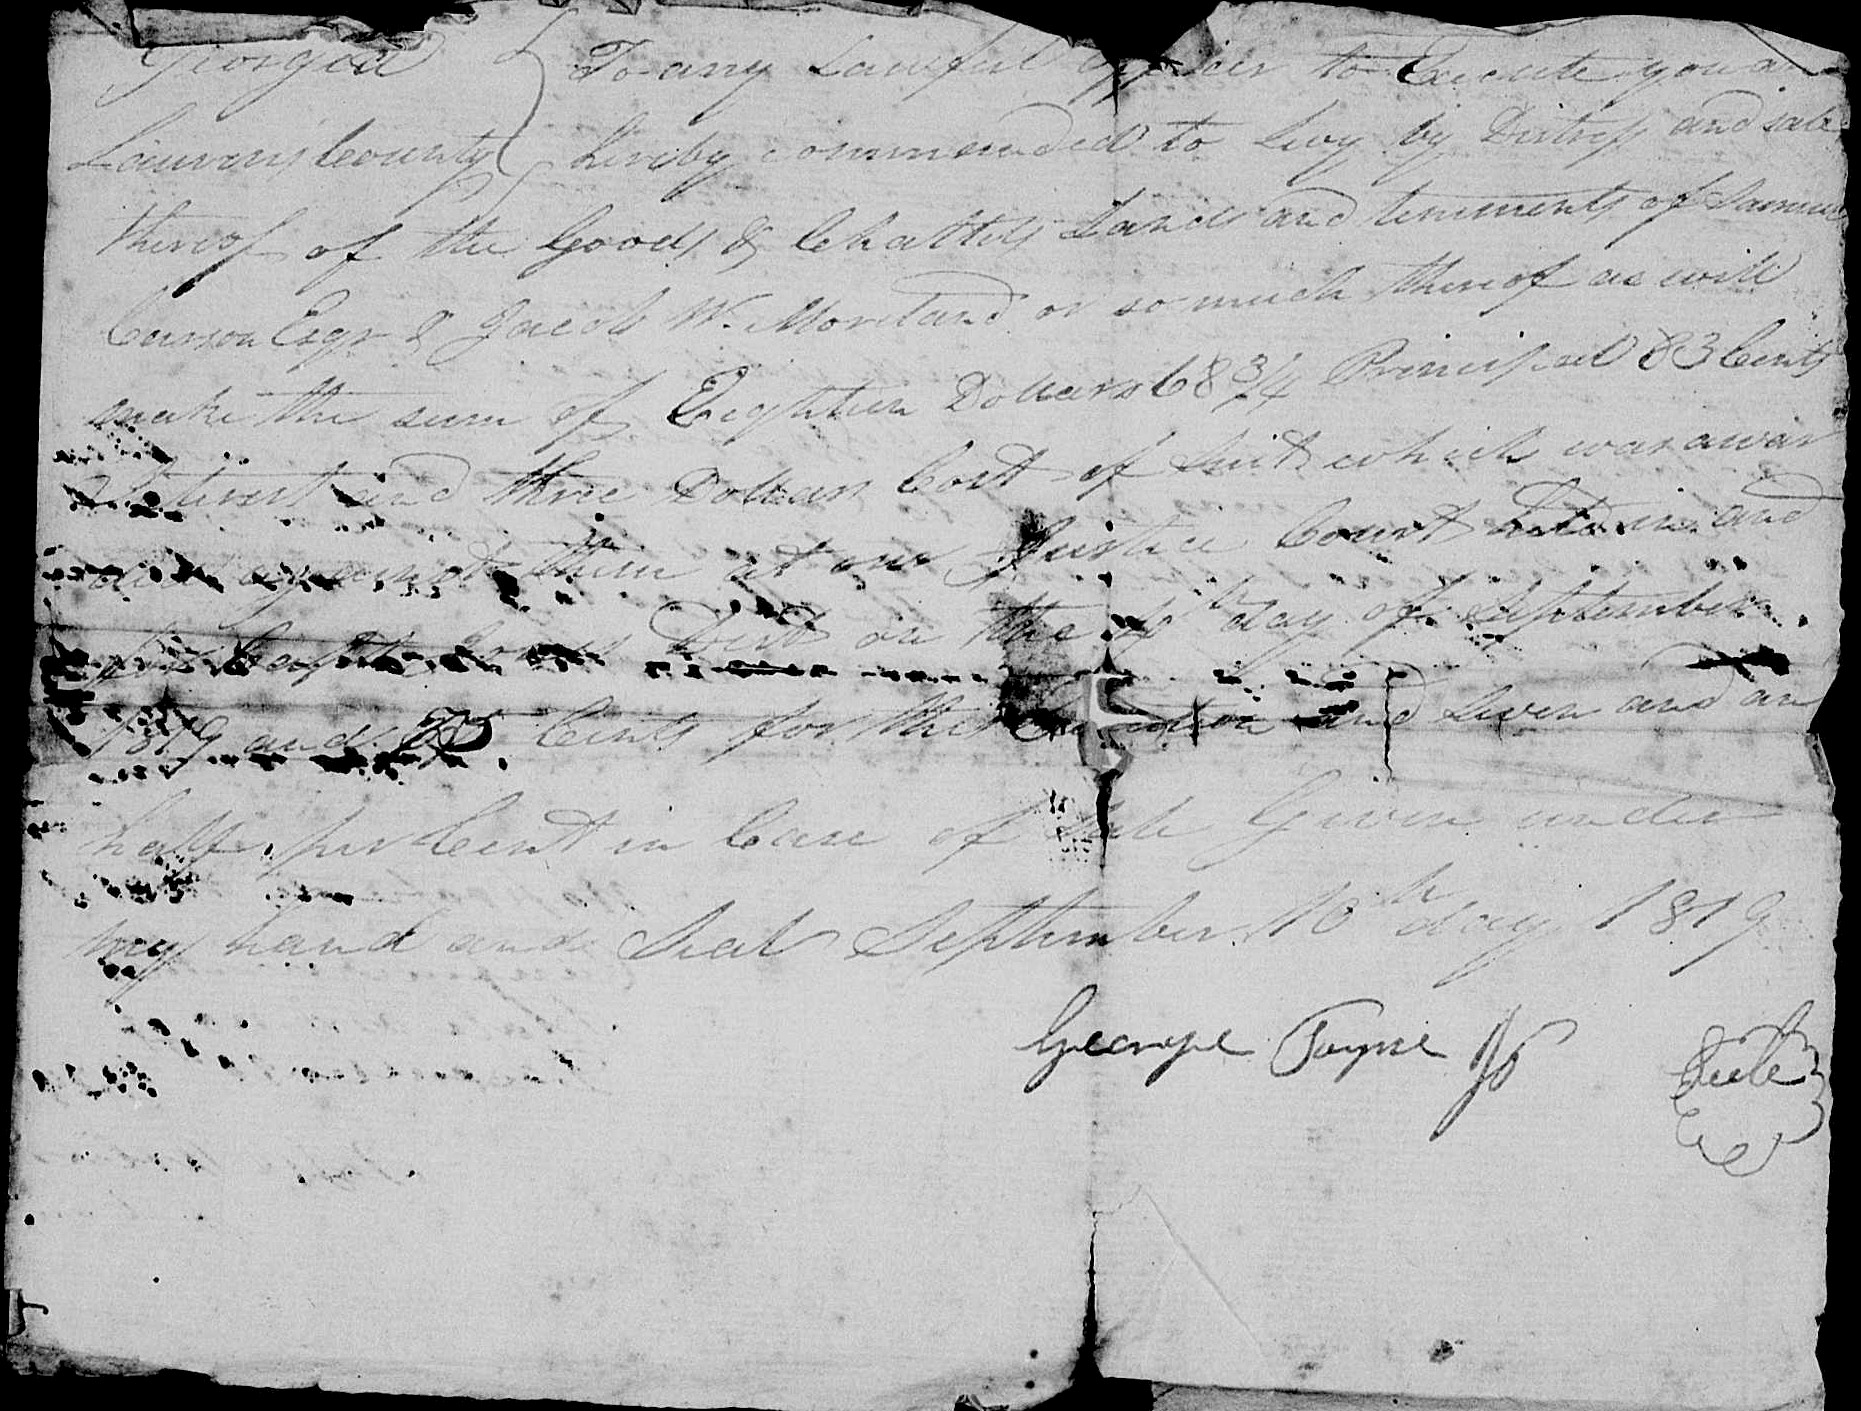 Georgia } To any Lawful officer to Execute you ar
Laurens County } hereby commanded to Levy by Distress and sale
thereof of the Goods & Chattels Lands and tenements of Samuel
Carson Esqr & Jacob W. Moreland or so much thereof as will
make the sum of Eighteen Dollars 68 3/4 Principal 83 Cents
Interest and three Dollars Cost of Suit which was awar
ded against them at our Justice Court held in and
for Capt Dist on the day of September
1819 and Cents for this Execution and seven and an
half per Cent in Case of sale Given under
my hand and Seal September 10th day 1819
George Payne JP Seale